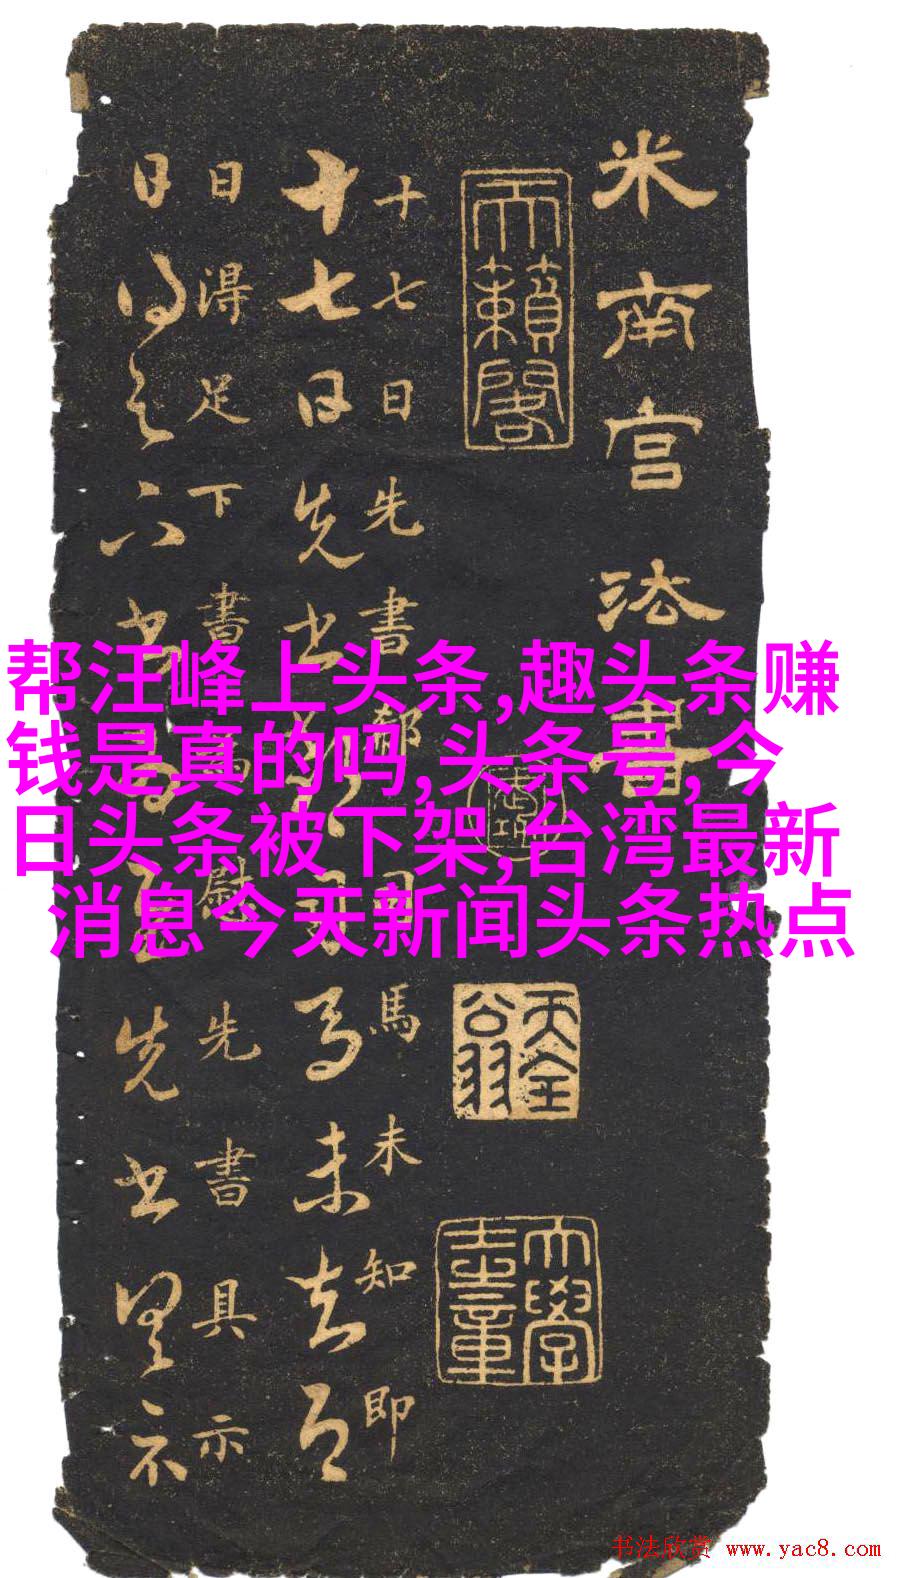 米南宫法書
天籟閣
十七日先書郗司馬未知即
十七日先書郗司馬未去即
日得足下書為慰先書具示
帮汪峰上头条,趣头条赚
钱是真的吗,头条号,今
日头条被下架,台湾最新
消息今天新闻头条热点
书法欣赏 www.yac8.com